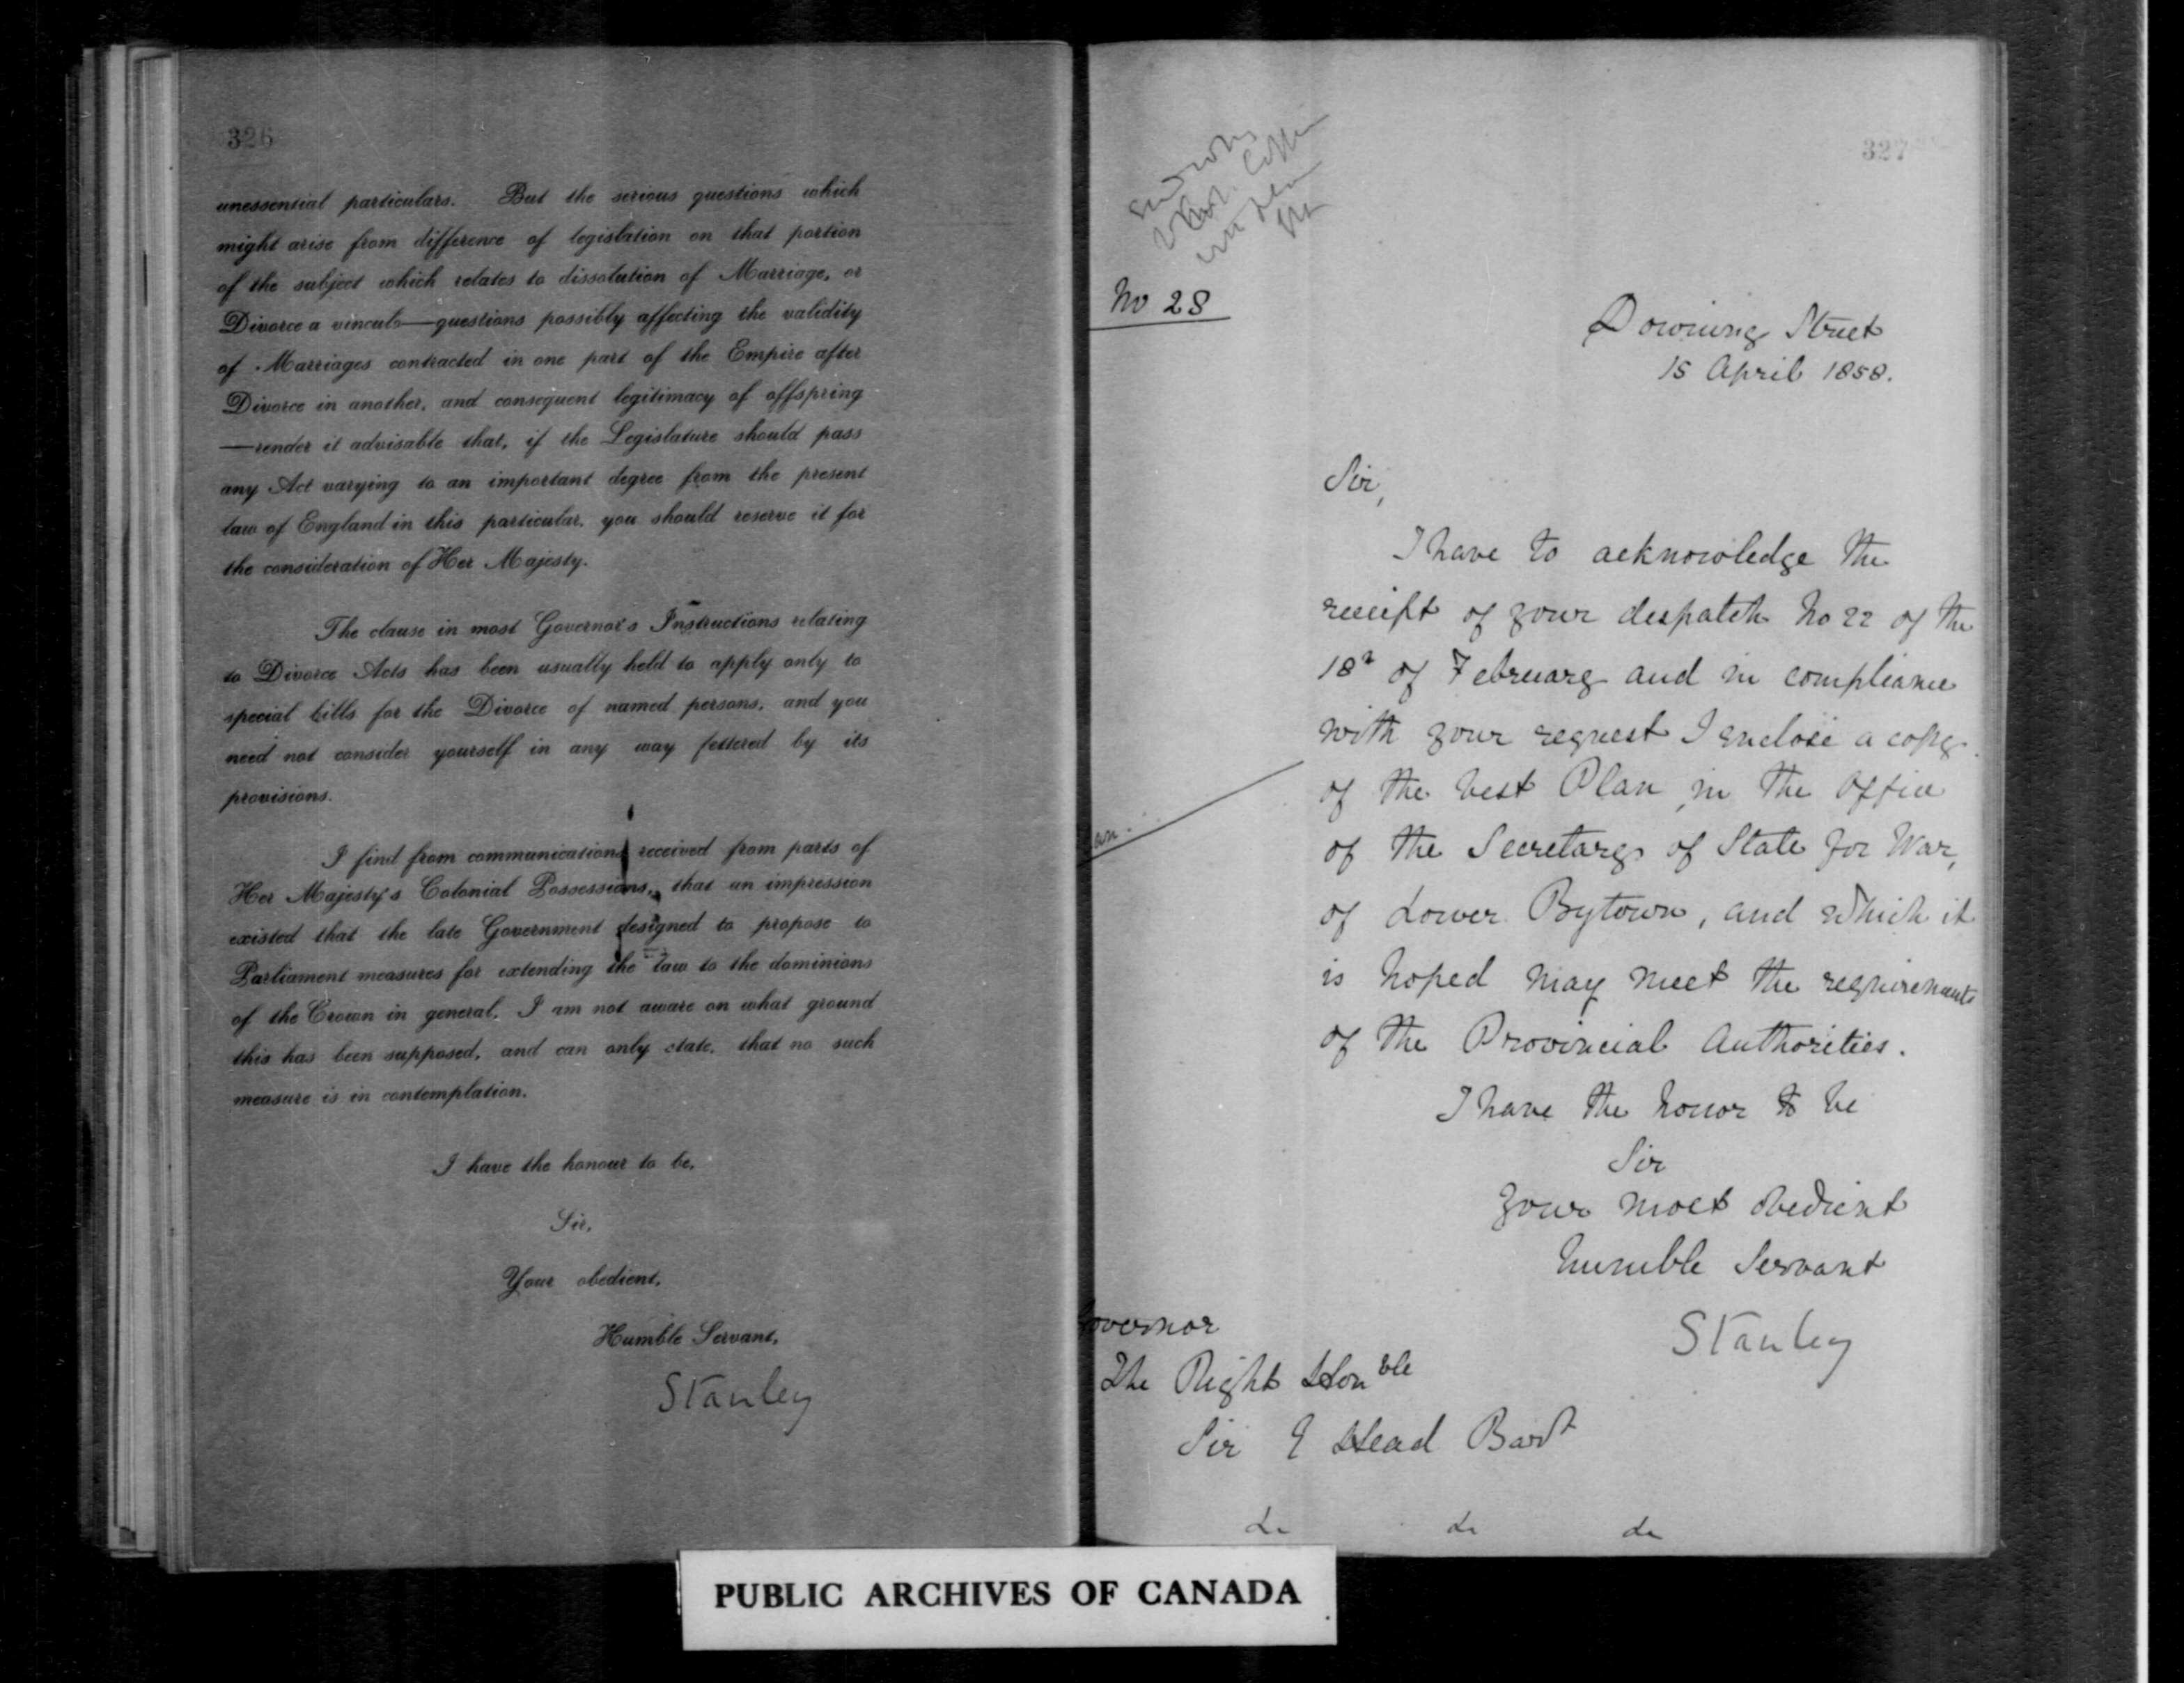 326
unessential particulars. But the serious questions which
might arise from difference of legislation on that portion
of the subject which relates to dissolution of Marriage, or
Divorce a vinculo—questions possibly affecting the validity
of Marriages contracted in one part of the Empire after
Divorce in another, and consequent legitimacy of offspring
—render it advisable that, if the Legislature should pass
any Act varying to an important degree from the present
law of England in this particular, you should reserve it for
the consideration of Her Majesty.
The clause in most Governor's Instructions relating
to Divorce Acts has been usually held to apply only to
special bills for the Divorce of named persons, and you
need not consider yourself in any way fettered by its
provisions.
I find from communications received from parts of
Her Majesty's Colonial Possessions, that an impression
existed that the late Government designed to propose to
Parliament measures for extending the law to the dominions
of the Crown in general. I am not aware on what ground
this has been supposed, and can only state, that no such
measure is in contemplation.
I have the honour to be,
Sir,
Your obedient,
Humble Servant,
Stanley
327
No 28
Downing Street
15 April 1858.
Sir,
I have to acknowledge the
receipt of your despatch No 22 of the
18th of February and in compliance
with your request I enclose a copy
of the best Plan, in the Office
of the Secretary of State for War,
of Lower Bytown, and which it
is hoped may meet the requirements
of the Provincial Authorities.
I have the honor to be
Sir
Your most obedient
humble Servant
Stanley
Governor
The Right Honble
Sir E Head Bart
&c &c &c
PUBLIC ARCHIVES OF CANADA